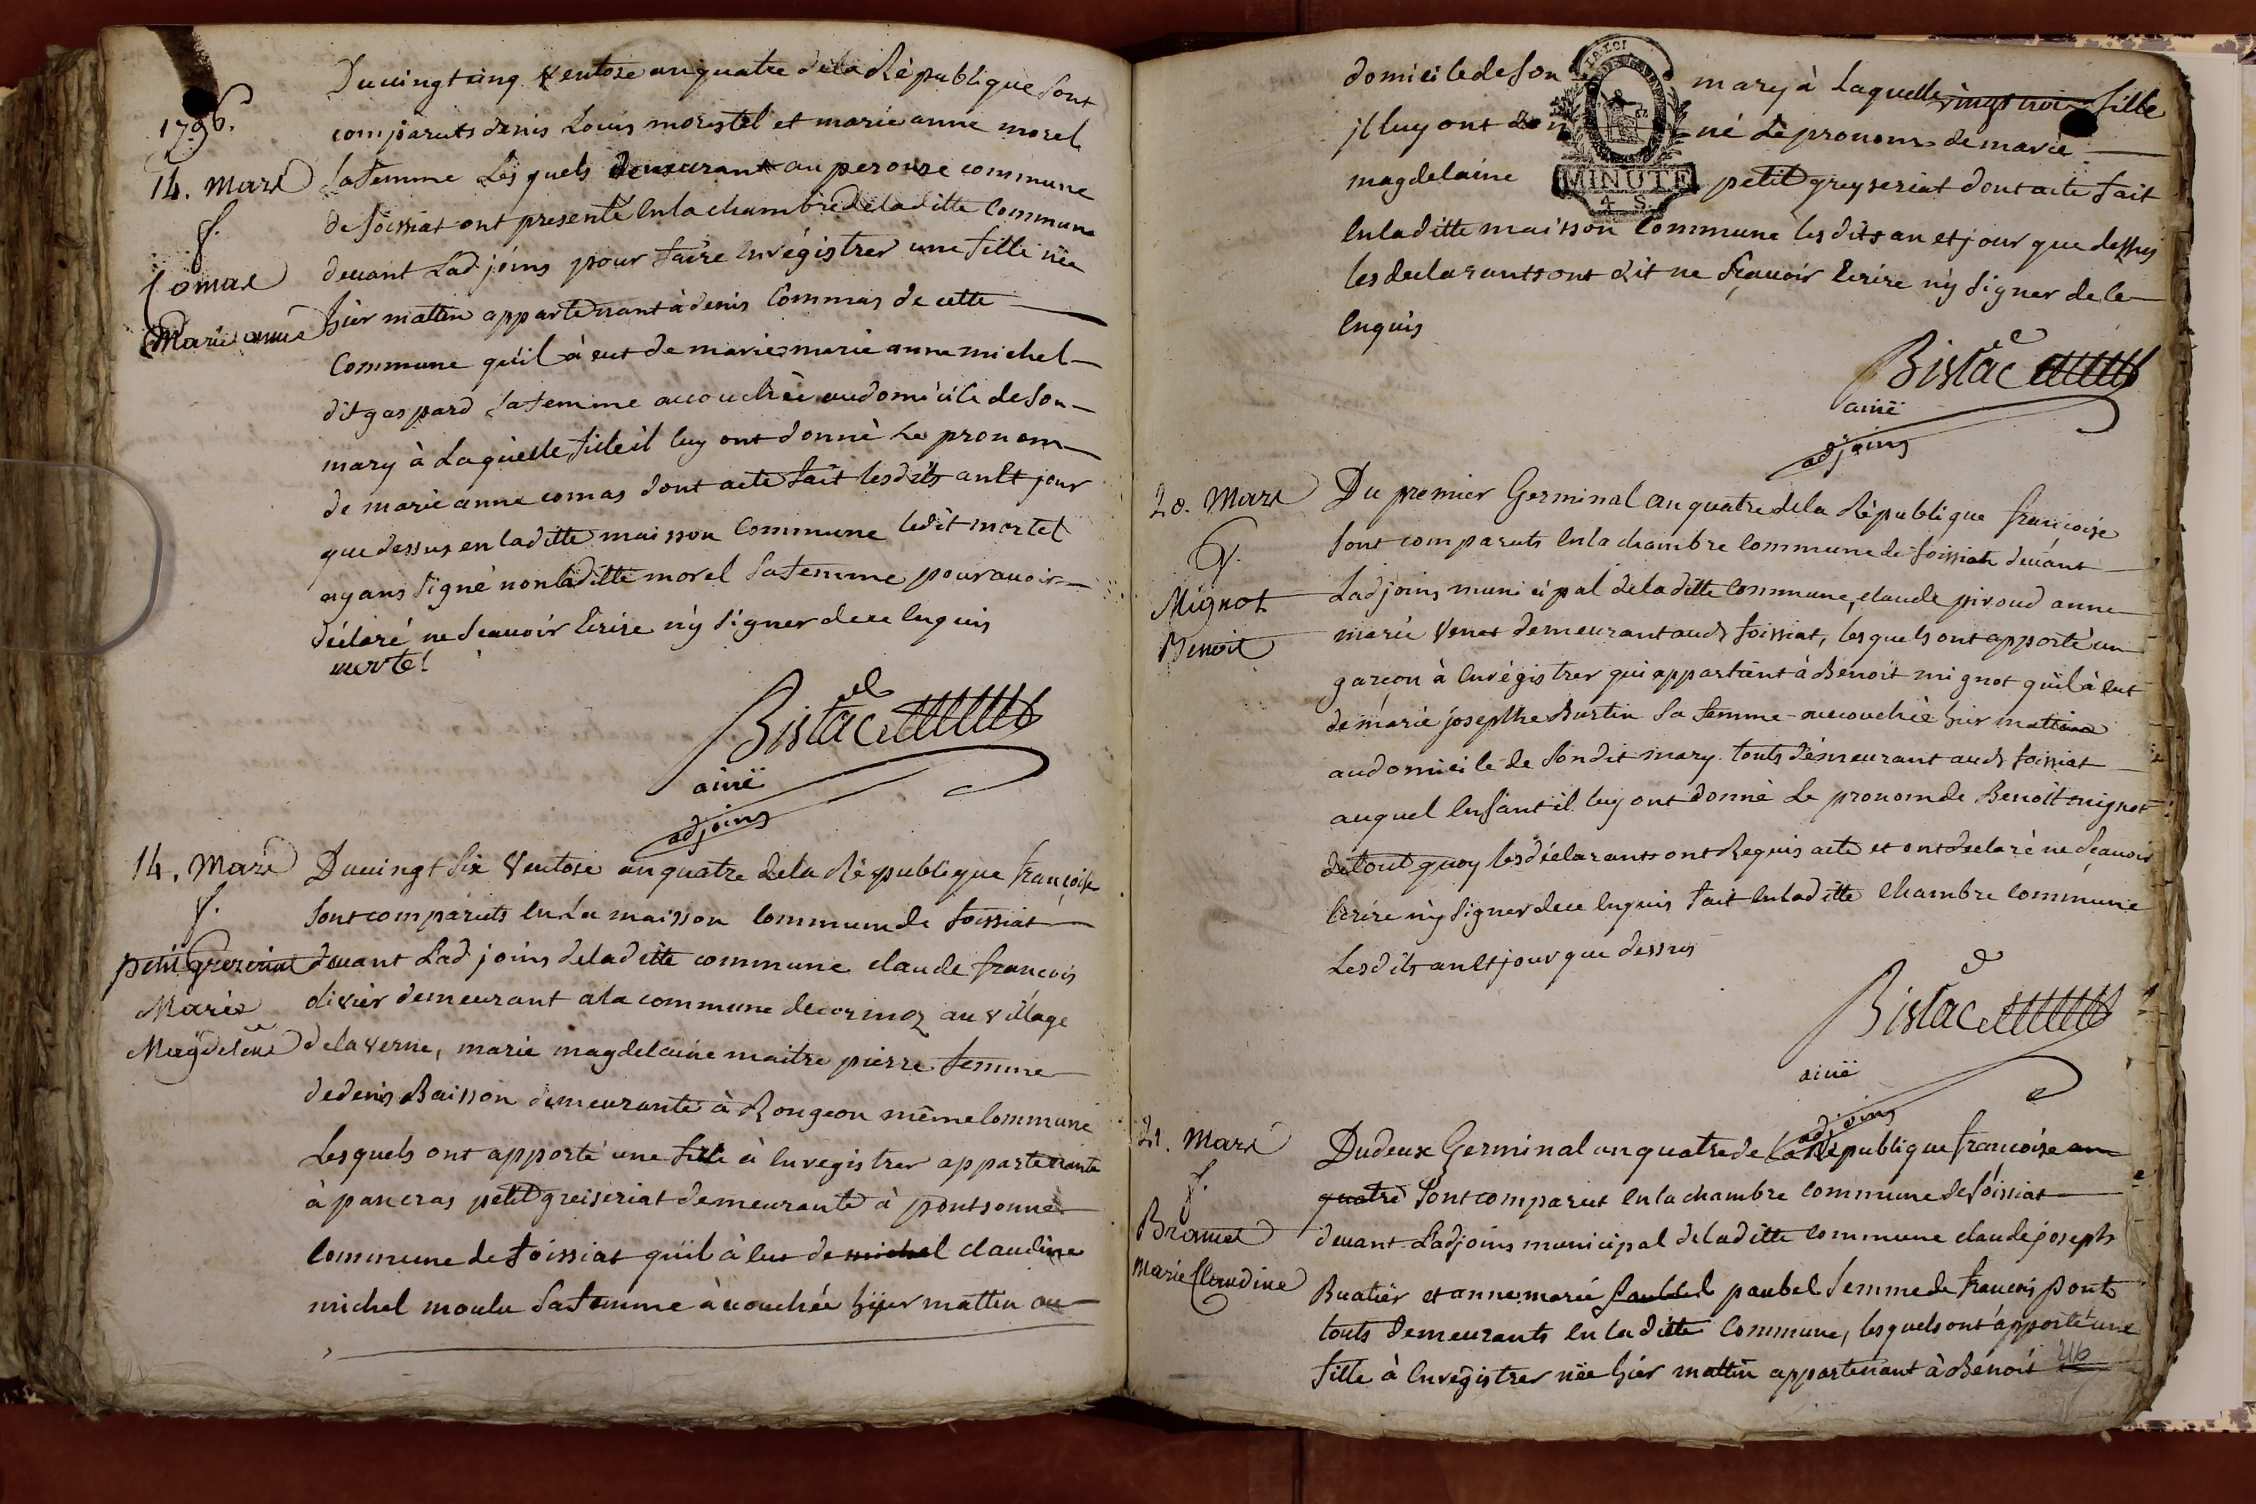 1796.
14. Mars
f.
Comas
Marie anne
Du vingt cinq Ventose an quatre de la République sont
comparuts denis Louis morestel et marie anne morel
sa femme Lesquels demeurant au perouse commune
de foissiat ont presenté en la chambre de la ditte Commune
devant Ladjoins pour faire enrégistrer une fille née
hier mattin appartenant à denis Commas de cette
Commune quil à eut de marie marie anne michel
dit gaspard sa femme accouchèe audomicile de son
mary à Laquelle fille il luy ont donné Le pronom
de marie anne comas dont acte fait lesdits an et jour
que dessus en laditte maisson Commune ledit mortel
ayans signé non laditte morel sa femme pour avoir
déclaré ne scavoir Ecrire ny signer de ce Enquis
mortel
Bistac
ainé
adjoins
14. Mars
f.
petit Grezeriat
Marie
Magdelene
Du vingt six Ventose an quatre dela République francoise
sont comparuts en La maisson commun de foissiat
devant Ladjoins de laditte commune claude francois
olivier demeurant a la commune de cormoz au village
de la verne, marie magdelaine maitre pierre femme
de denis Baisson demeurante à Rongeon même Commune
Lesquels ont apporté une fille à Enregistrer appartenante
à pancras petit greiseriat demeurante à pontsonne
Commune de foissiat quil à Eut de michel claudine
michel moulu sa femme àcouchée hyer mattin au
domicile de son mary à Laquelle fille
jl luy ont donné Le pronom de marie
magdelaine petit greyseriat dont acte fait
LA LOI
MINUTE
4 S.
En la ditte maisson Commune les dits an et jour que dessus
les declarants ont dit ne sçavoir Ecrire ny signer de ce
Enquis
Bistac
ainé
adjoins
20. Mars
G.
Mignot
Benoit
Du premier Germinal an quatre dela République francoise
sont comparuts en la chambre Commune de foissiat devant
Ladjoins municipal de laditte Commune, claude piroud anne
marie Venet demeurant aud foissiat, lesquels ont apporté un
garcon à Enrégistrer qui appartient à Benoit mignot quil à Eut
de marie josephe Burtin sa femme accouchée hier mattin
au domicile de son dit mary touts démeurant aud foissiat
auquel Enfant il luy ont donné Le pronom de Benoit mignot
de tout quoy les déclarants ont Requis acte et ont declaré ne scavoir
Ecrire ny signer de ce Enquis fait en laditte Chambre Commune
Lesdits an et jour que dessus
Bistac
ainé
adjoins
21. Mars
f.
Bramet
Marie Claudine
Du deux Germinal an quatre de la République francoise an
quatre sont comparut En la chambre Commune de foissiat
devant Ladjoins municipal de laditte Commune claude joseph
Buatier et anne marie paubel femme de francois pont
touts demeurants En la ditte Commune, lesquels ont apporté une
fille à Enregistrer née hier mattin appartenant à Benoit